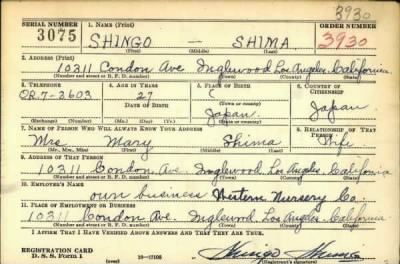 3930
SERIAL NUMBER 1. NAME (Print) ORDER NUMBER
3075 SHINGO — SHIMA 3930
(First) (Middle) (Last)
2. ADDRESS (Print)
10311 Condon Ave Inglewood Los Angeles California
(Number and street or R. F. D. number) (Town) (County) (State)
3. TELEPHONE 4. AGE IN YEARS 5. PLACE OF BIRTH 6. COUNTRY OF CITIZENSHIP
OR. 7-2603 27
DATE OF BIRTH (Town or county)
Japan Japan
(Exchange) (Number) (Mo.) (Day) (Yr.) (State or country)
7. NAME OF PERSON WHO WILL ALWAYS KNOW YOUR ADDRESS 8. RELATIONSHIP OF THAT PERSON
Mrs Mary Shima Wife
(Mr., Mrs., Miss) (First) (Middle) (Last)
9. ADDRESS OF THAT PERSON
10311 Condon Ave. Inglewood, Los Angeles, California
(Number and street or R. F. D. number) (Town) (County) (State)
10. EMPLOYER'S NAME
own business Western Nursery Co.
11. PLACE OF EMPLOYMENT OR BUSINESS
10311 Condon Ave. Inglewood, Los Angeles, California
(Number and street or R. F. D. number) (Town) (County) (State)
I AFFIRM THAT I HAVE VERIFIED ABOVE ANSWERS AND THAT THEY ARE TRUE.
REGISTRATION CARD
D. S. S. Form 1 (over) 16—17105 (Registrant's signature)